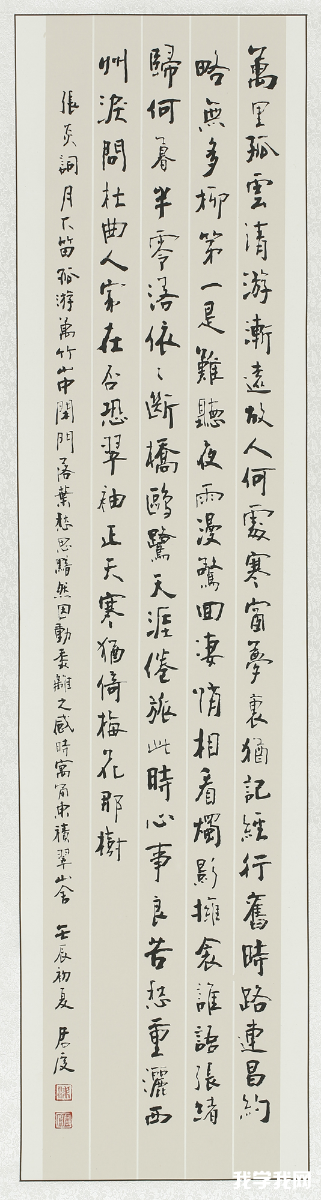 萬里孤雲清游漸遠故人何處寒窗夢裏猶記經行舊時路連昌約
略無多柳第一是難聽夜雨漫驚回淒悄相看燭影擁衾誰語張緒
歸何暮半零落依ミ斷橋鷗鷺天涯倦旅此時心事良苦愁重灑西
州淚問杜曲人家在否恐翠袖正天寒猶倚梅花那樹
張炎詞月下笛孤游萬竹山中閑門落葉愁思黯然因動黍離之感時寓甬東積翠山舍 壬辰初夏 君度
我学我网